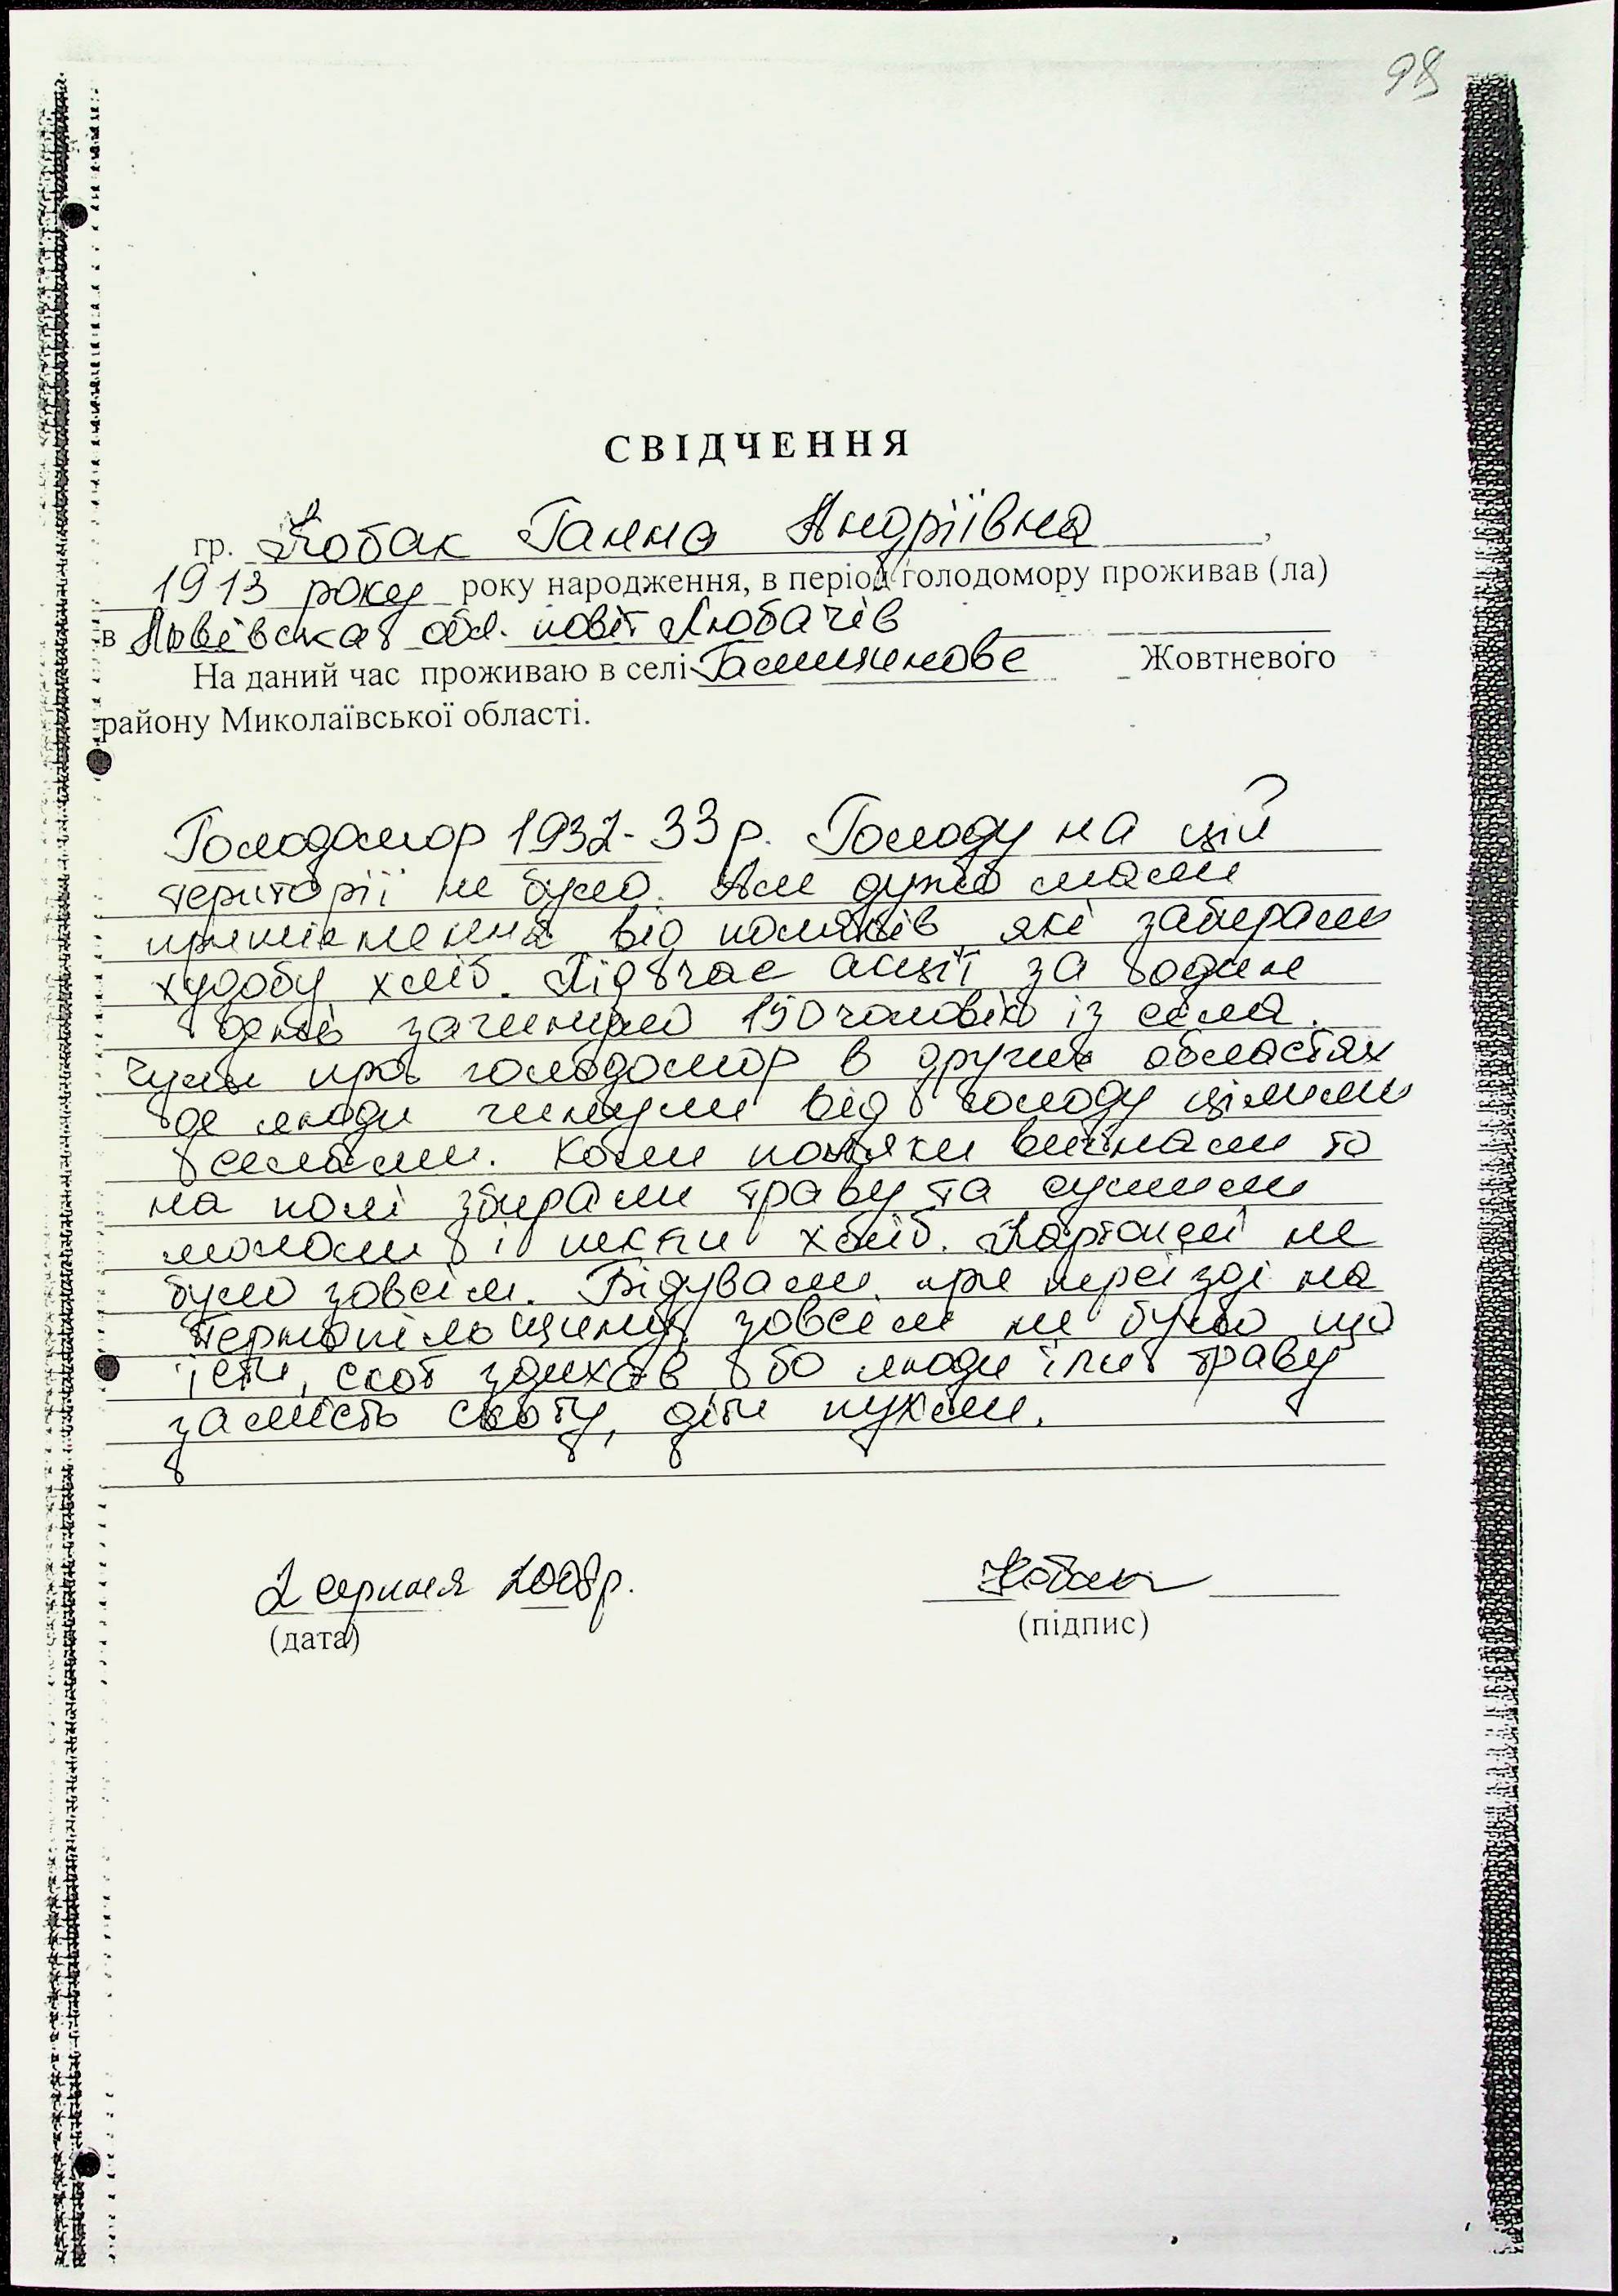 98
СВІДЧЕННЯ
гр. Кобак Ганна Андріївна,
1913 року року народження, в період голодомору проживав (ла)
в Львівська обл. повіт Любачів
На даний час проживаю в селі Галицинове Жовтневого
району Миколаївської області.
Голодомор 1932-33 р. Голоду на цій
території не було. Але дужо мали
притіснення від поляків які забирали
худобу хліб. Під час акції за один
день загинуло 150 чоловік із села.
Чули про голодомор в других областях
де люди гинули від голоду цілими
селами. Коли поляки вигнали то
на полі збирали траву та сушили
мололи і пекли хліб. Картоплі не
було зовсім. Бідували при переїзді на
Тернопільщину зовсім не було що
їсти, скот здихав бо люди їли траву
замість скоту, діти пухли.
2 серпня 2008р. Кобак
(дата) (підпис)